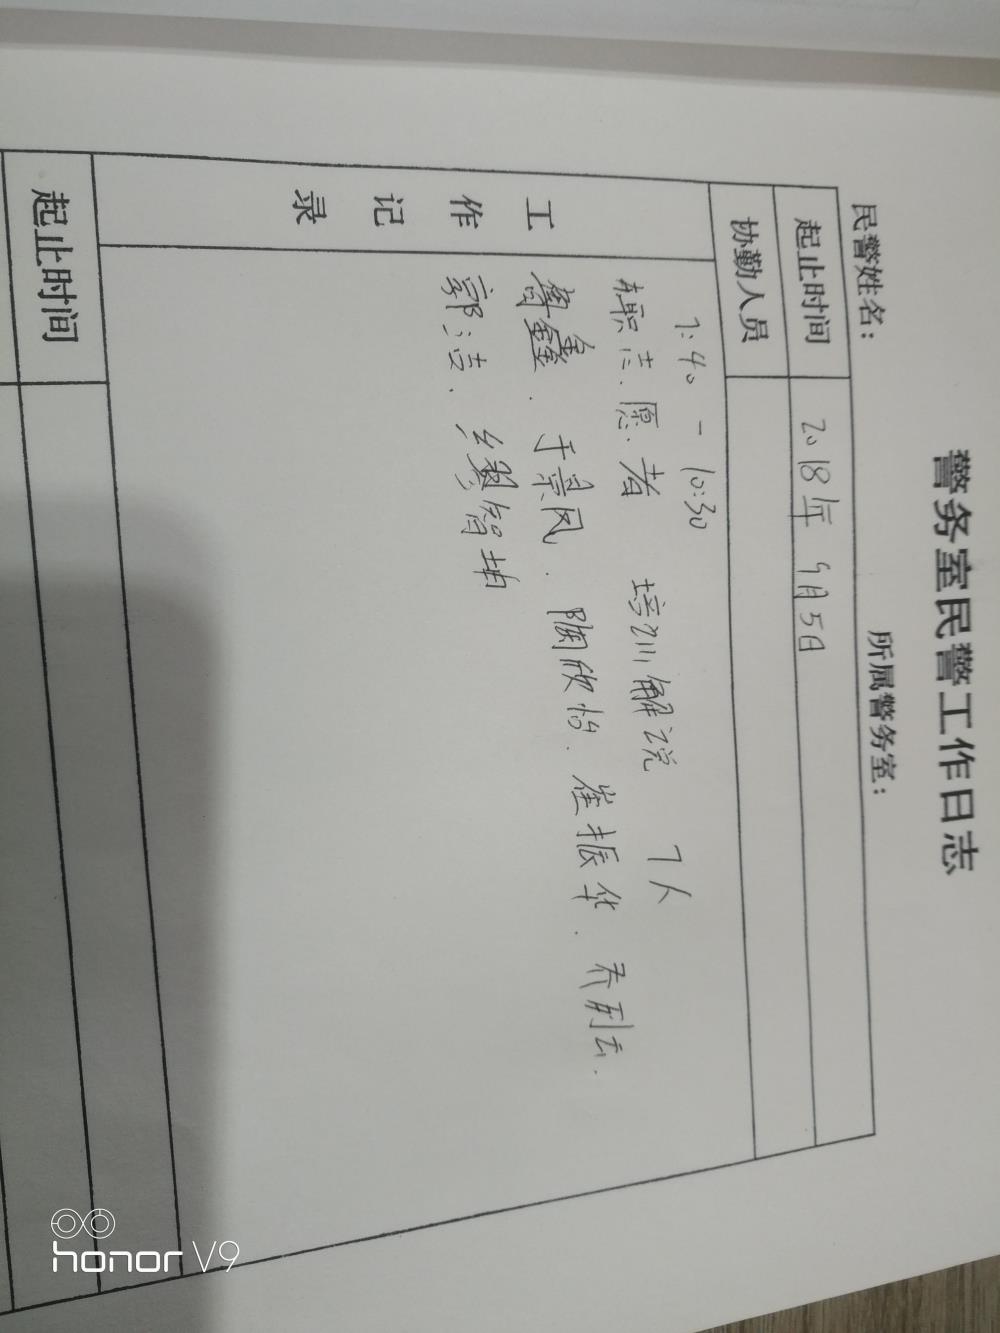 警务室民警工作日志
民警姓名： 所属警务室：
起止时间 2018年9月5日
协勤人员
工作记录
7:40 - 10:30
职志愿者 培训解说 7人
鲁鑫、于景凤、陶欣怡、崔振华、乔列云、
郭洁、缪智坤
起止时间
honor V9